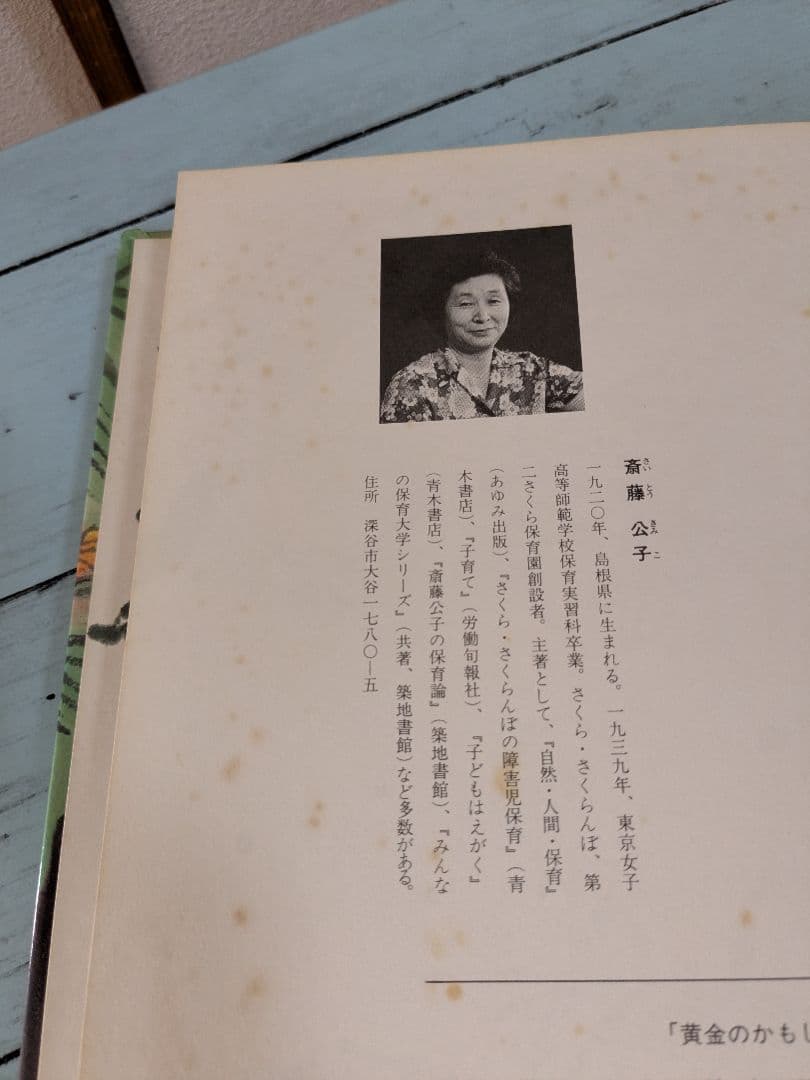 斎藤公子
さいとうきみこ
一九二〇年、島根県に生まれる。一九三九年、東京女子
高等師範学校保育実習科卒業。さくら・さくらんぼ、第
二さくら保育園創設者。主著として、『自然・人間・保育』
(あゆみ出版)、『さくら・さくらんぼの障害児保育』(青
木書店)、『子育て』(労働旬報社)、『子どもはえがく』
(青木書店)、『斎藤公子の保育論』(築地書館)、『みんな
の保育大学シリーズ』(共著、築地書館)など多数がある。
住所 深谷市大谷一七八〇―五
「黄金のかもし